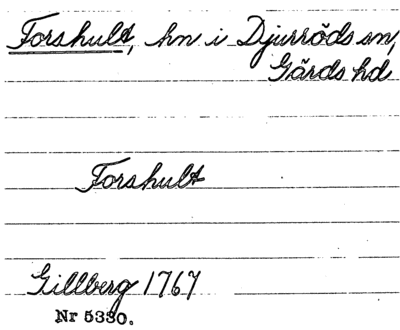 Forshult, hn i Djurröds sn,
Gärds hd
Forshult
Gillberg 1767
Nr 5330.